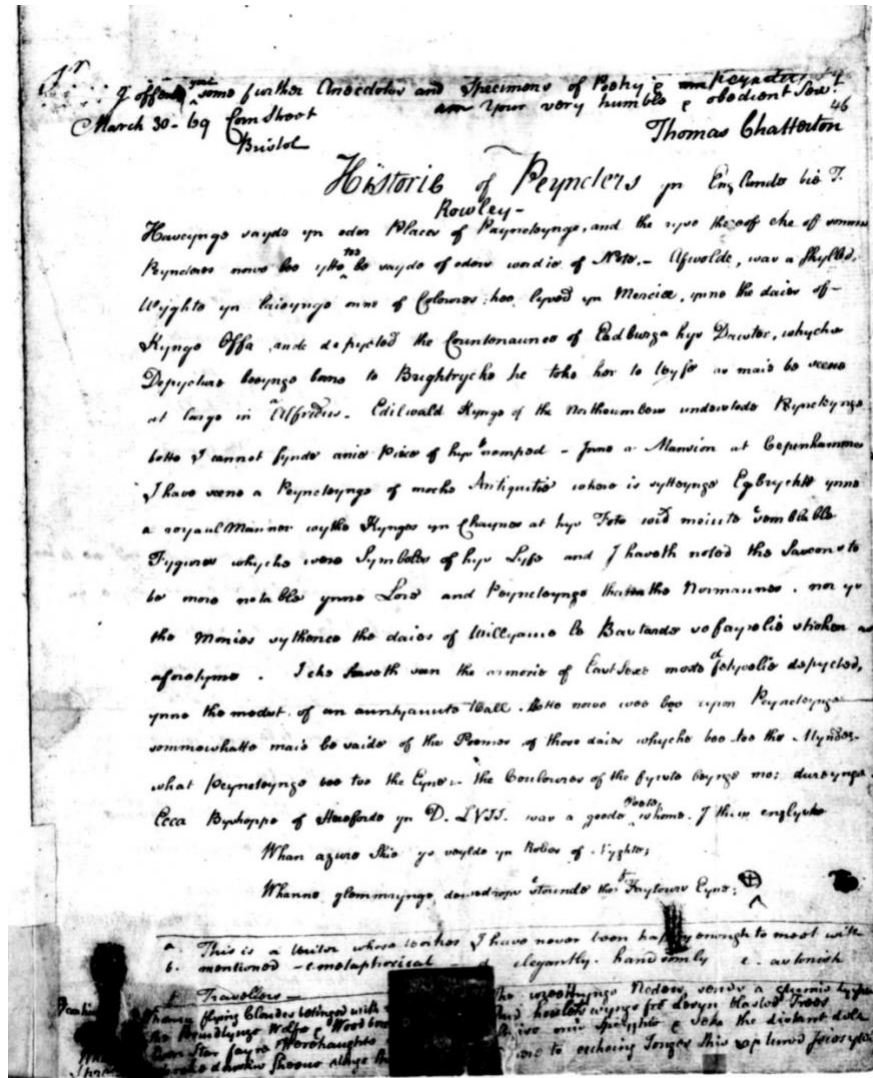 Sr
I offer you some further Anecdotes and Specimens of Poetry &
March 30 - 69 Corn Street Your very humble & obedient Serv.t
Bristol Thomas Chatterton
46
Historie of Peyncters yn Englande bie T.
Rowley -
Haveynge sayde yn oder Places of Peyncteynge, and the ryse thereof eke of somme
Peyncters nowe bee ytte to be sayde of oders wordie of Note. - Afwolde, was a Skylled
Wyghte yn laieynge onne of Coloures; hee lyved yn Mercia, ynne the daies of -
Kynge Offa, ande depycted the Countenaunce of Eadburga hys Dawter, whyche
Depycture beeynge borne to Brightrycke he toke her to Wyfe as maie be seene
at large in Alfridus. a Edilwald Kynge of the Northumbers understode Peyncteynge
botte I cannot fynde anie Piece of hys nempned b - Inne a Mansion at Copenhamme
I have seene a Peyncteynge of moche Antiquitie where is sytteynge Egbrychte ynne
a royaul Manner wythe Kynges yn Chaynes at hys Fote wyth meincte semblable c
Fygures whyche were Symboles of hys Lyfe and I haveth noted the Saxons to
be more notable ynne Lore and Peyncteynge thann the Normannes. nor ys
the Monies sythence the daies of Willyame le Bastarde so fayrelie stroken as
aforetyme. I eke haveth seen the armorie of East Sexe moste fetyvelie d depycted,
ynne the medst. of an auntyaunte Wall. Botte nowe wee bee upon Peyncteynge
sommewhatte maie be saide of the Poemes of those daies whyche bee toe the Mynde
what Peyncteynge bee toe the Eyne. the Couloures of the fyrste beynge mo: dureynge
Ecca Byshoppe of Hereforde yn D. LVII. was a goode Poete whome I thus englyshe
Whan azure Skie ys veylde yn Robes of Nyghte;
Whanne glemmrynge dewedrops e stounde the f Faytours Eyne;
a This is a Writer whose Works I have never been happy enough to meet with
b. mentioned - c. metaphorical - d elegantly. handsomly e. astonish
f Travellers -
Whann flying Cloudes betinged with